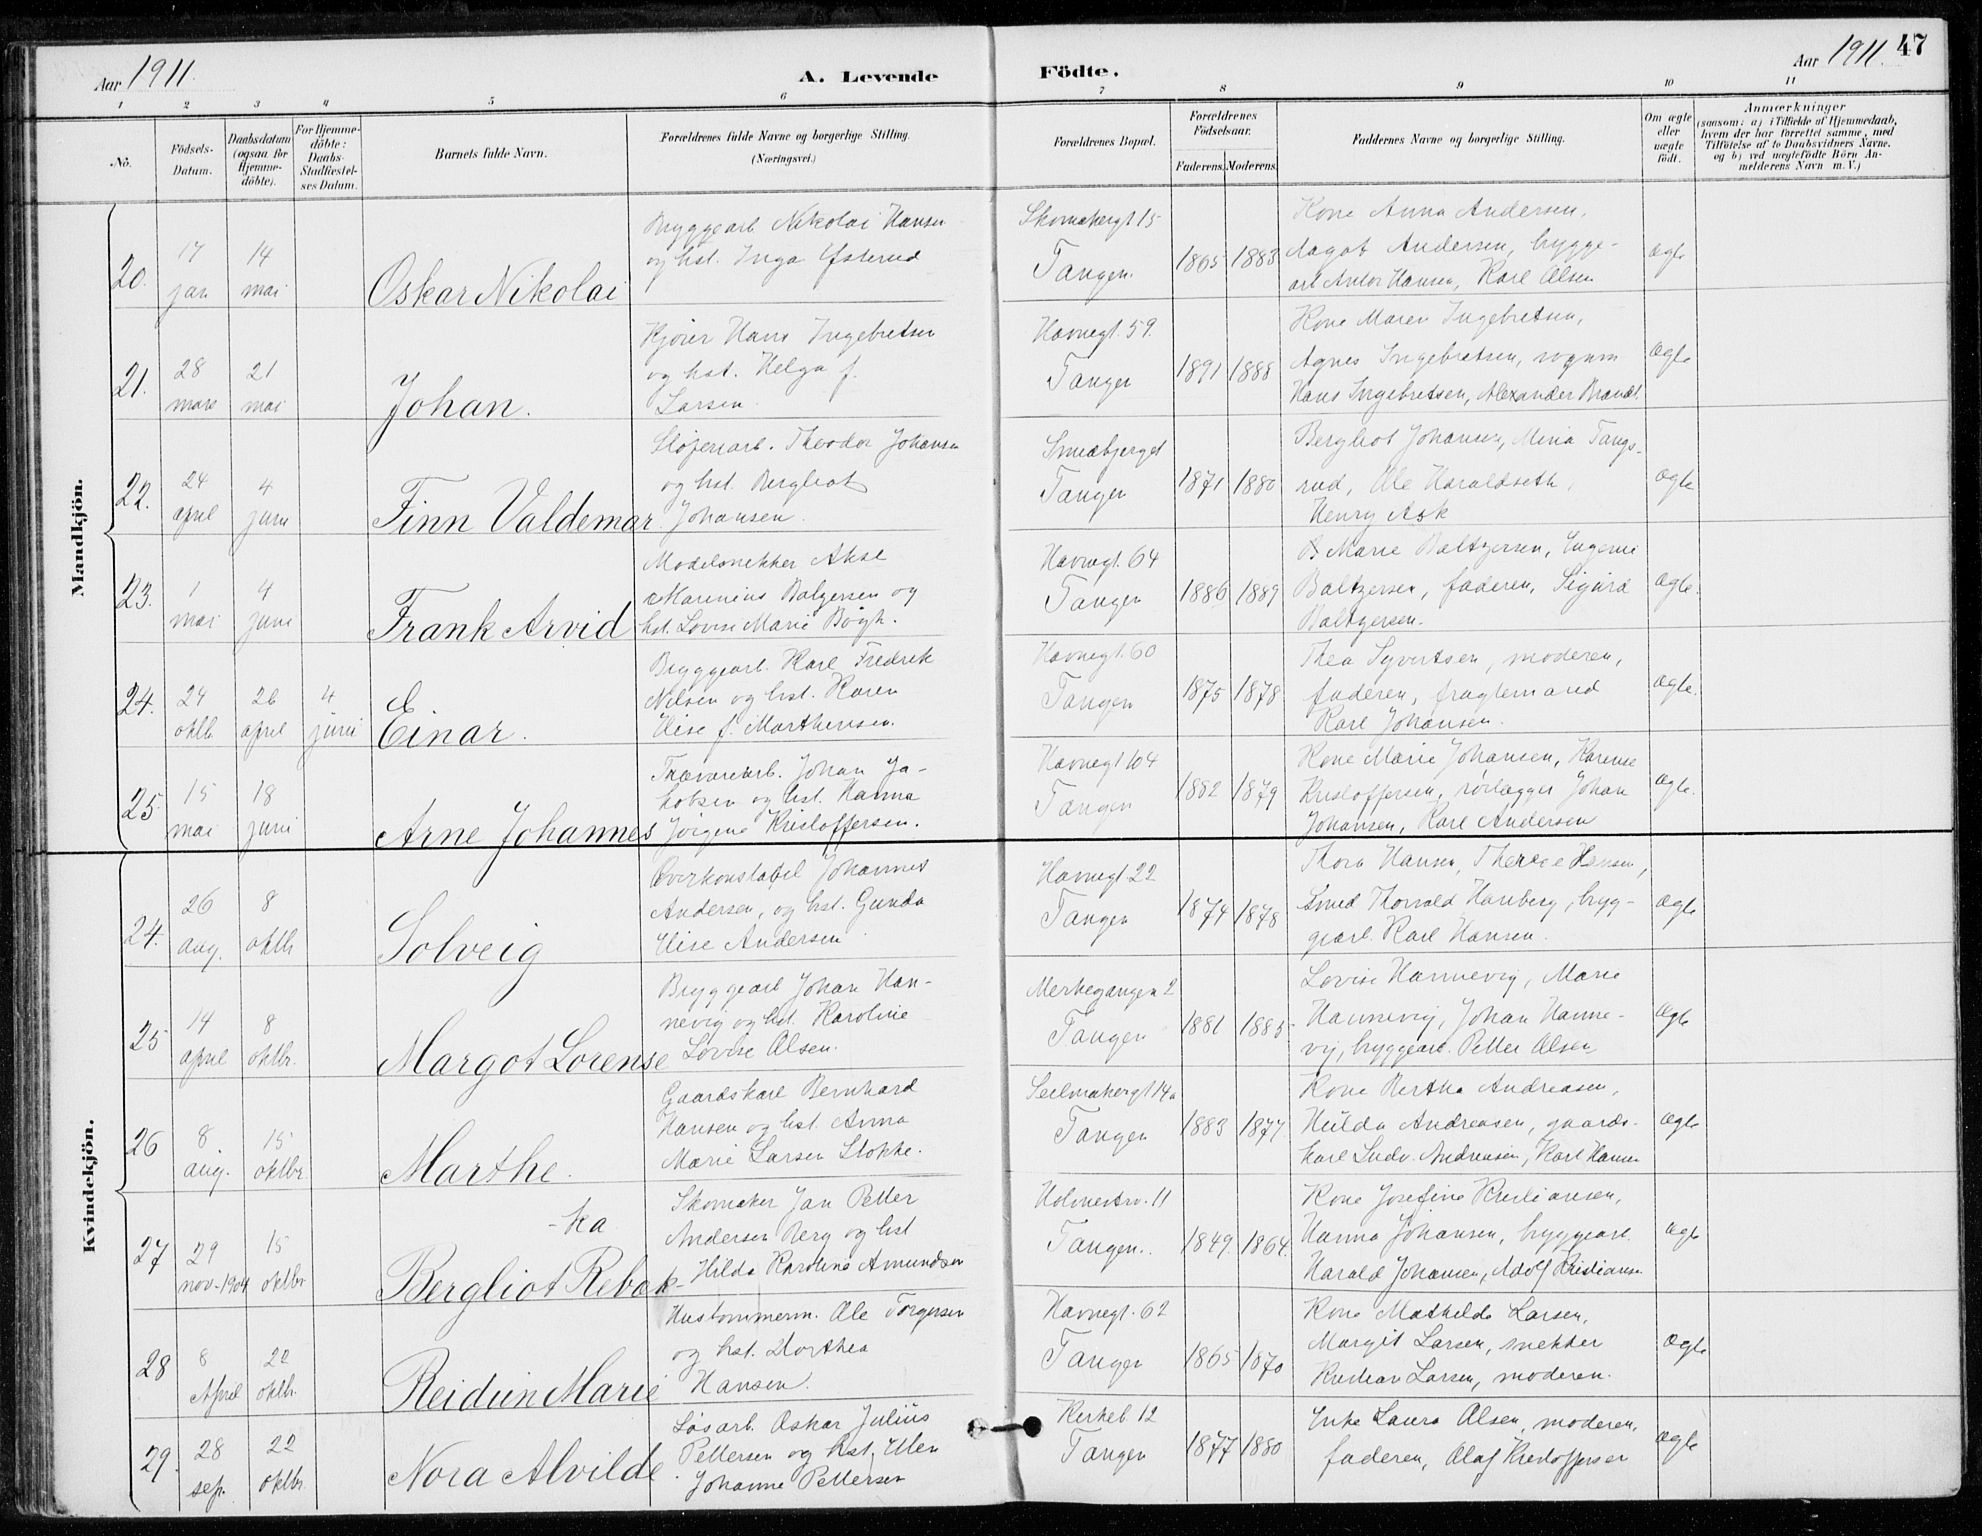 Aar 1911.
A. Levende Födte.
Aar 1911. 47
1 2 3 4 5 6 7 8 9 10 11
No.
Födsels-Datum.
Daabsdatum (ogsaa for Hjemme-döbte).
For Hjemme-döbte: Daabs-Stadfæstel-ses Datum.
Barnets fulde Navn.
Forældrenes fulde Navne og borgerlige Stilling. (Næringsvei.)
Forældrenes Bopæl.
Forældrenes Födselsaar.
Faderens. Moderens.
Faddernes Navne og borgerlige Stilling.
Om ægte eller uægte födt.
Anmærkninger
(saasom: a) i Tilfælde af Hjemmedaab,
hvem der har forrettet samme, med
Tilföielse af to Daabsvidners Navne.
og b) ved uægtefödte Börn An-
melderens Navn m. V.)
Mandkjön.
20. 17 jan 14 mai Oskar Nikolai
Bryggearb Nikolai Hansen
og hst. Inga
Skomakergt 15
Tangen. 1865 1883
Kone Anna Andersen,
Aagot Andersen, brygge-
arb Anton Hansen, Karl Olsen
ægte
21. 28 mars 21 mai Johan.
Kjører Hans Ingebretsen
og hst. Helga f.
Larsen.
Havnegt. 59.
Tangen 1891 1888
Kone Maren Ingebretsen,
Agnes Ingebretsen, vognm
Hans Ingebretsen, Alexander Brandt.
ægte
22. 24 april 4 juni Finn Valdemar.
Sløjeriarb. Theodor Johansen
og hst. Bergliot
Johansen.
Smedbjerget
Tangen 1871 1880
Bergliot Johansen, Mina Tangs-
rud, Ole Haraldseth,
Henry Ask
ægte
23. 1 mai 4 juni Frank Arvid
Modelsnekker Aksel
Marinius Balzersen og
hst. Lovise Marie Bögh.
Havnegt. 64
Tangen 1886 1889
Marie Baltzersen, Eugenie
Baltzersen, faderen, Sigurd
Baltzersen.
ægte.
24. 24 oktb. 26 april 4 juni Einar.
Bryggearb. Karl Fredrik
Nilsen og hst. Karen
Elise f. Marthinsen.
Havnegt. 60
Tangen 1875 1878
Thea Syvertsen, moderen,
faderen, fragtemand
Karl Johansen.
ægte.
25. 15 mai 18 juni Arne Johannes
Trævarearb. Johan Ja-
kobsen og hst. Hanna
Jörgine Kristoffersen.
Havnegt 104
Tangen 1882 1879
Kone Marie Johansen, Karense
Kristoffersen, rörlægger Johan
Johansen, Karl Andersen
ægte.
Kvindekjön.
24. 26 aug. 8 oktb Solveig
Overkonstabel Johannes
Andersen, og hst. Gunda
Elise Andersen
Havnegt. 22
Tangen 1874 1878
Thora Hansen, Therese Hansen,
Smed Thorvald Hanberg, bryg-
gearb. Karl Hansen.
ægte
25 14 april 8 oktbr. Margot Lorense
Bryggearb Johan Han-
nevig og hst. Karoline
Lovise Olsen.
Merkegangen 2
Tangen 1881 1885
Lovise Hannevig, Marie
Hannevig, Johan Hanne-
vig, bryggearb. Petter Olsen
ægte
26 8 aug. 15 oktbr. Marthe.
Gaardskarl Bernhard
Hansen og hst. Anna
Marie Larsen Stokke.
Seilmakergt 14a
Tangen 1883 1877.
Kone Bertha Andreasen,
Hulda Andreasen, gaards-
karl Ludv. Andreasen, Karl Hansen
ægte
27 29 nov-1904 15 oktbr Bergliot Rebek-
-ka
Skomaker Jan Petter
Andersen Berg og hst
Hilda Karoline Amundsen
Holmestrv. 11
Tangen.. 1849. 1864.
Kone Josefine Kristiansen,
Hanna Johansen, bryggearb.
Harald Johansen, Adolf Kristiansen
ægte
28 8 April 22 oktb. Reidun Marie
Hustømmerm. Ole Torgersen
og hst. Dorthea
Hansen.
Havnegt. 62
Tangen 1865 1870
Kone Mathilde Larsen,
Margit Larsen, snekker
Kristian Larsen, moderen.
ægte
29. 28 sep. 22 oktbr Nora Alvilde
Løsarb. Oskar Julius
Pettersen og hst. Ellen
Johanne Pettersen
Kirkeb 12
Tangen 1877 1880
Enke Laura Olsen, moderen,
faderen, Olaf Kristoffersen
ægte